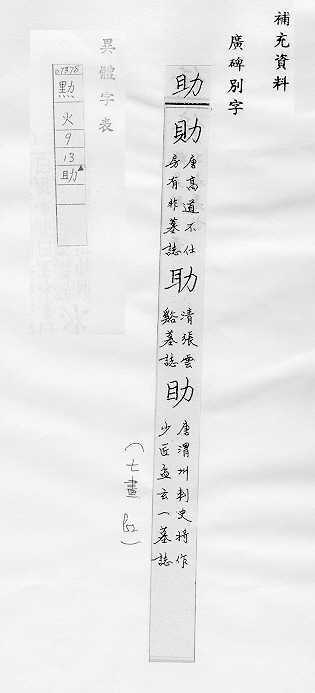 補充資料
廣碑別字
助
唐高道不仕
房有非墓誌
清張雲
谿墓誌
唐渭州刺史將作
少匠孟玄一墓誌
(七畫 P52)
異體字表
勲
火
9
13
助